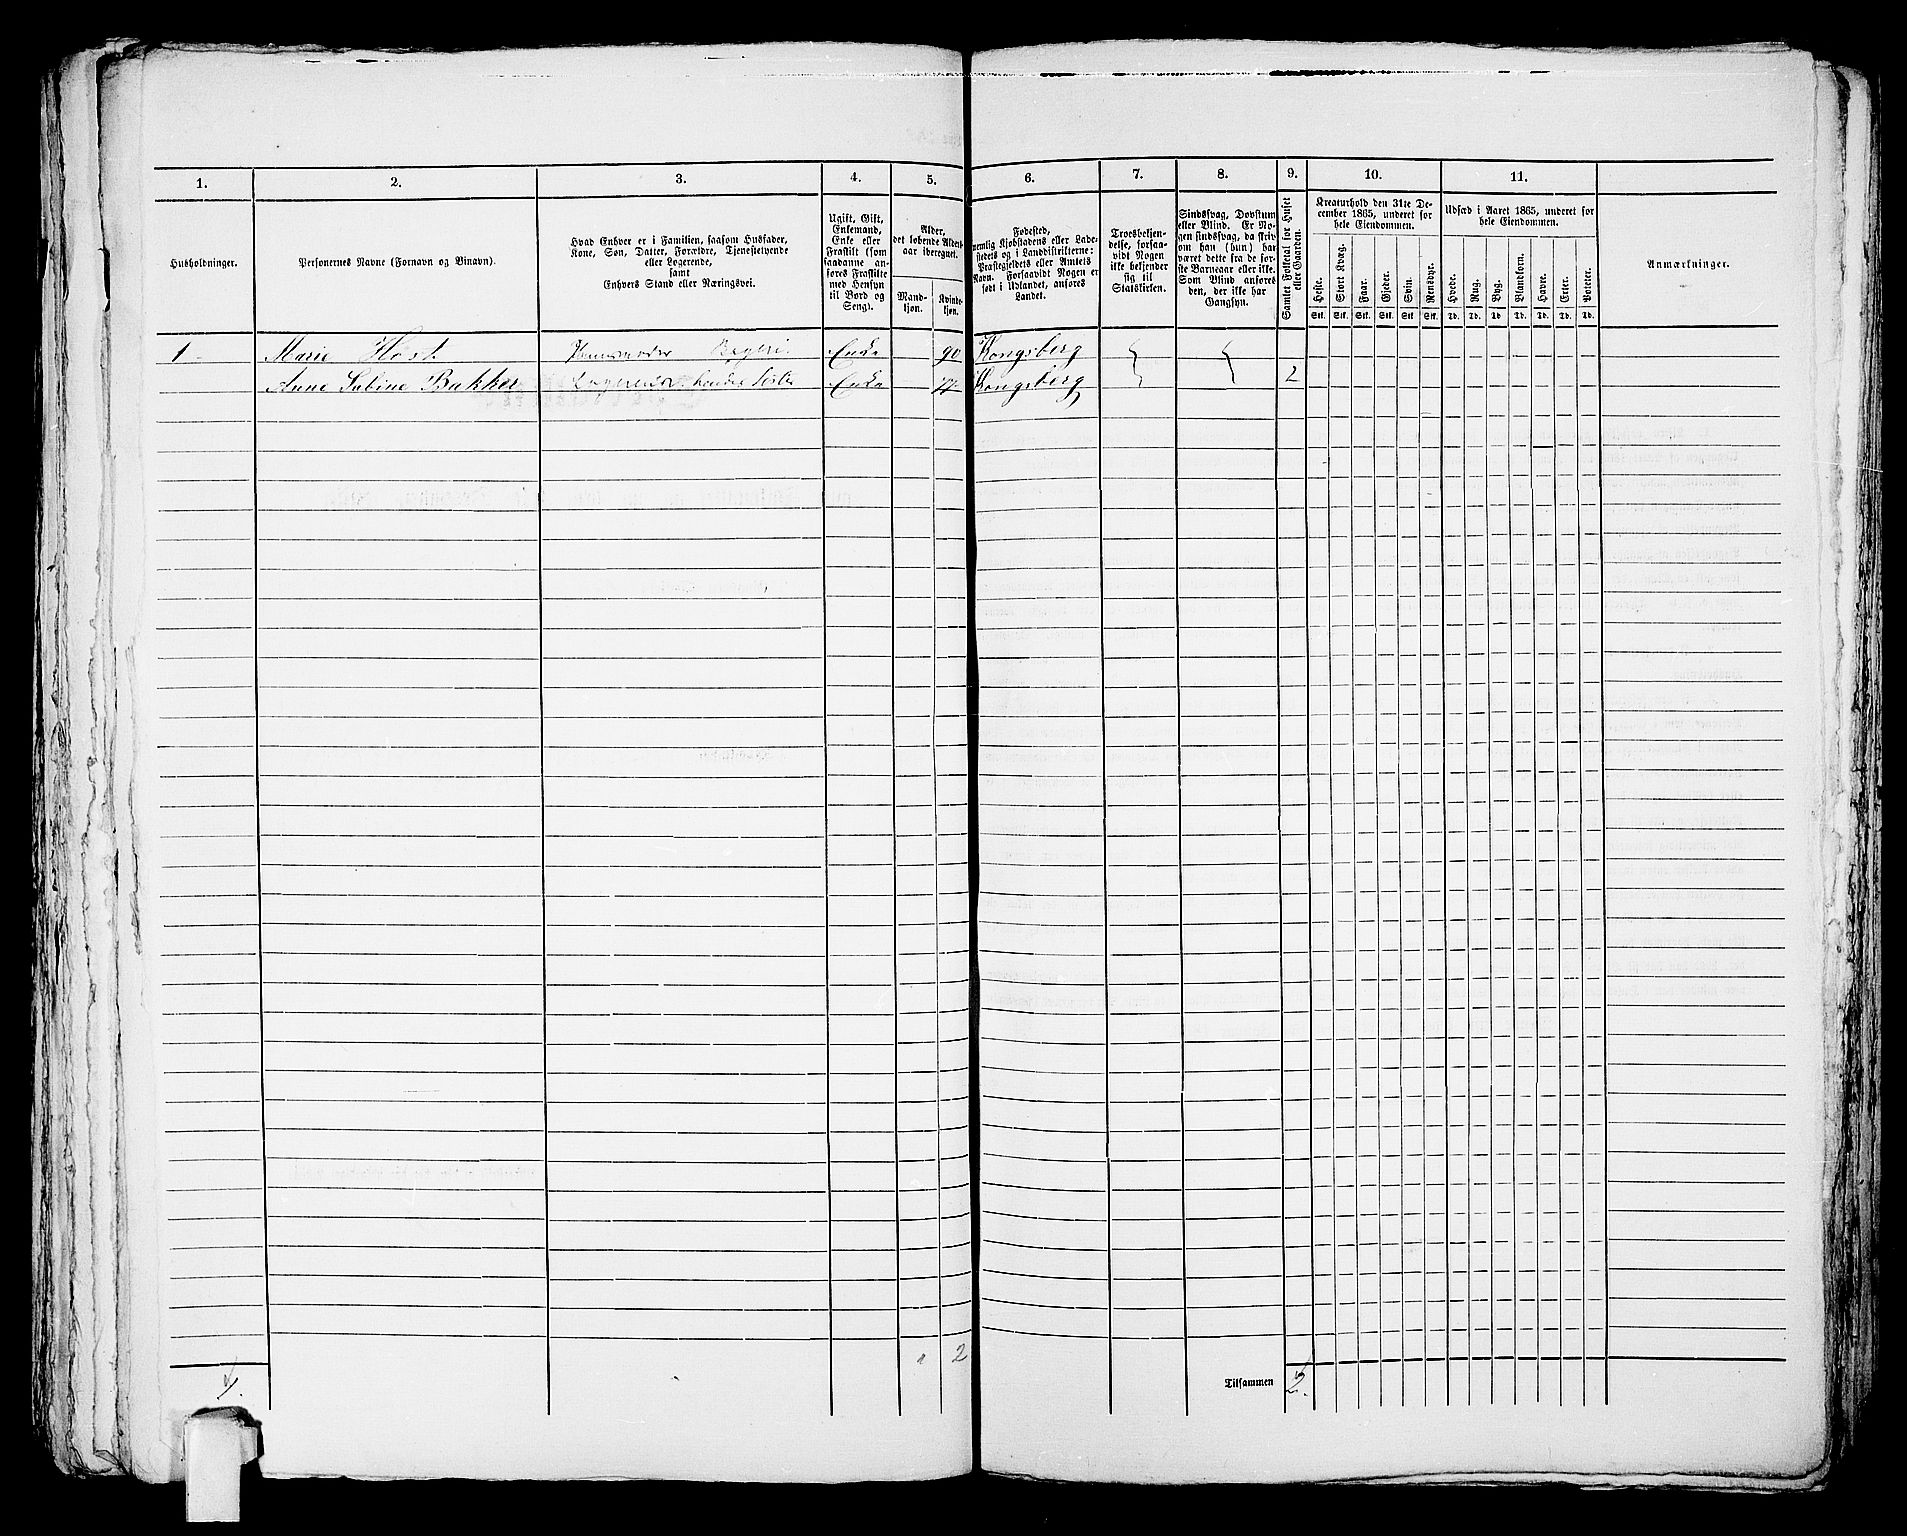 1. 2. 3. 4. 5. 6. 7. 8. 9. 10. 11.
Husholdninger.
Personernes Navne (Fornavn og Binavn).
Hvad Enhver er i Familien, saasom Husfader,
Kone, Søn, Datter, Forældre, Tjenestetyende
eller Logerende,
samt
Enhvers Stand eller Næringsvei.
Ugift, Gift,
Enkemand,
Enke eller
Fraskilt (som
saadanne an-
føres Fraskilte
med Hensyn
til Bord og
Seng).
Alder,
det løbende Alders-
aar iberegnet.
Mand-
kjøn.
Kvinde-
kjøn.
Fødested,
nemlig Kjøbstadens eller Lade-
stedets og i Landdistrikterne:
Præstegjeldets eller Amtets
Navn. Forsaavidt Nogen er
født i Udlandet, anføres
Landet.
Troesbekjen-
delse, forsaa-
vidt Nogen
ikke bekjender
sig til
Statskirken.
Sindssvag, Døvstum
eller Blind. Er No-
gen sindssvag, da skriv
om han (hun) har
været dette fra de før-
ste Barneaar eller ikke.
Som Blind anføres
den, der ikke har
Gangsyn.
Samlet Folketal for Huset
eller Gaarden.
Kreaturhold den 31te De-
cember 1865, underet for
hele Eiendommen.
Heste. Stort Kvæg. Faar. Gjeder. Svin. Rensdyr.
Stk. Stk. Stk. Stk. Stk. Stk.
Udsæd i Aaret 1865, underet for
hele Eiendommen.
Hvede. Rug. Byg. Blandkorn. Havre. Erter. Poteter.
Td. Td. Td Td. Td. Td. Td.
Anmærkninger.
1 Marie Høst Enke 90 Kongsberg
Anne Sabine Bakker Logerende Enke 77 Kongsberg 2
2
Tilsammen 2.
1.